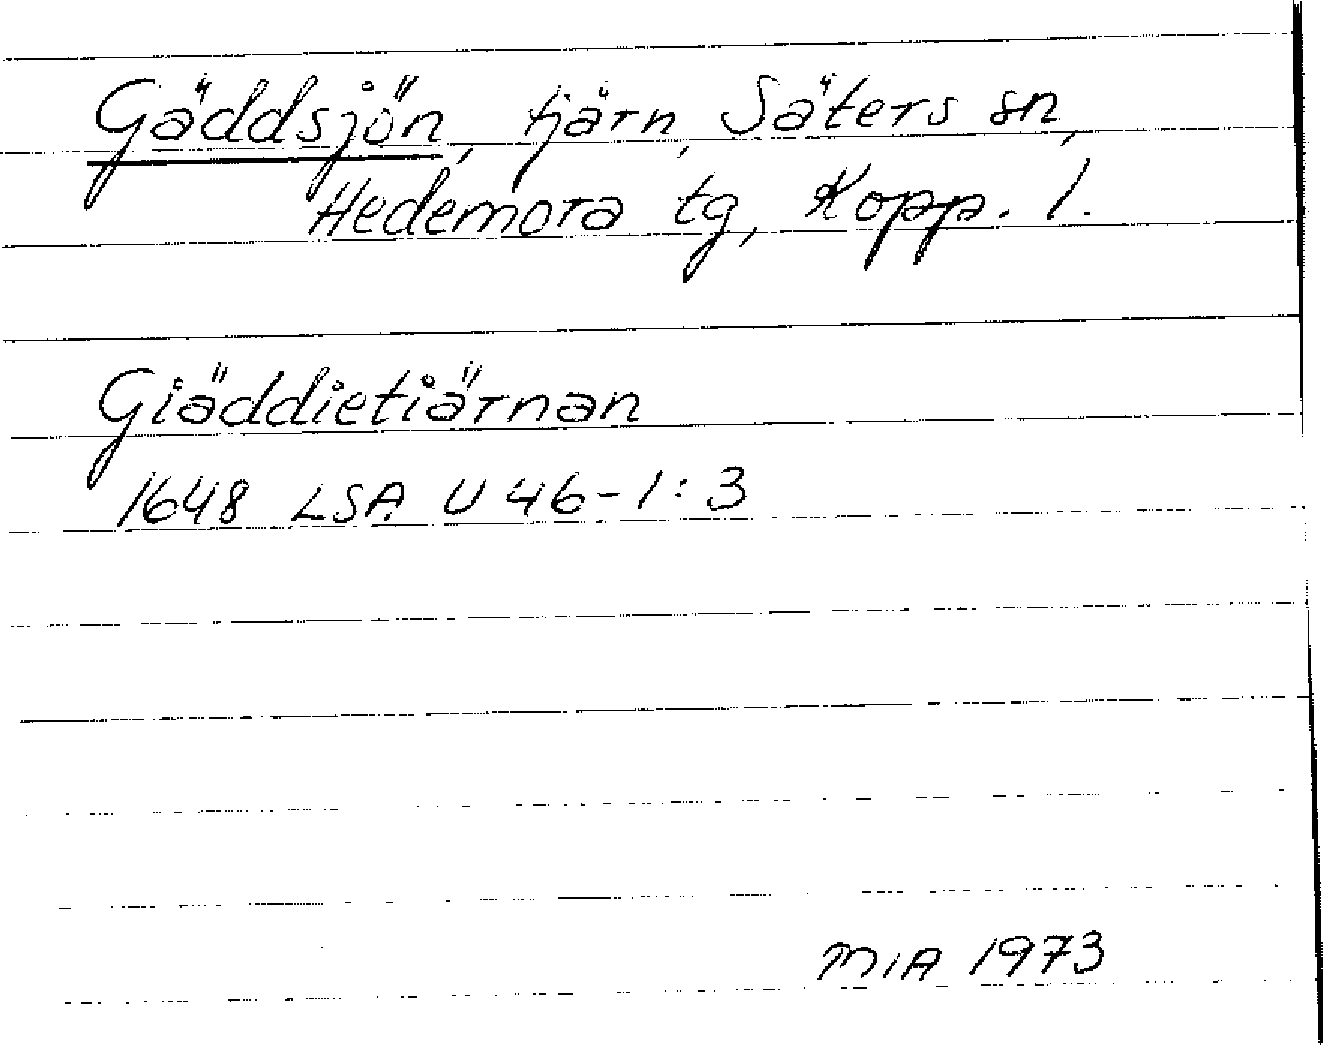 Gäddsjön, tjärn, Säters sn,
Hedemora tg, Kopp. l.
Giäddietiärnan
1648 LSA U 46-1:3
MIA 1973